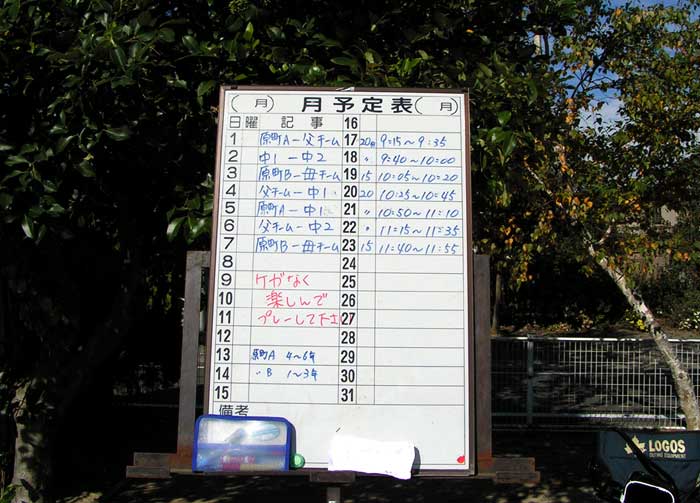 (月) 月予定表 (月)
日曜 記事 16
1 原町A－父チーム 17 20分 9:15～9:35
2 中1 －中2 18 〃 9:40～10:00
3 原町B－母チーム 19 15 10:05～10:20
4 父チーム－中1 20 20 10:25～10:45
5 原町A－中1 21 〃 10:50～11:10
6 父チーム－中2 22 〃 11:15～11:35
7 原町B－母チーム 23 15 11:40～11:55
8 24
9 ケガなく 25
10 楽しんで 26
11 プレーして下さい 27
12 28
13 原町A 4～6年 29
14 〃B 1～3年 30
15 31
備考
LOGOS